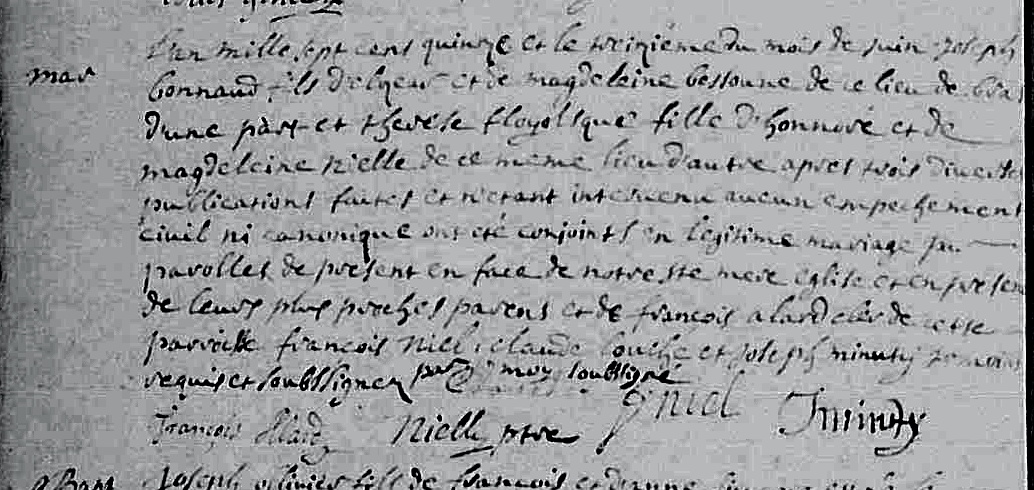 mar
L'an mille sept cens quinze et le treizième du mois de juin Joseph
bonnaud fils d'elzear et de magdeleine bessoune de ce lieu de
d'une part et therese floyol fille d'honnoré et de
magdeleine nielle de ce meme lieu d'autre apres trois diverses
publications faites et n'etant intervenu aucun empechement
civil ni canonique ont été conjoints en légitime mariage par
parolles de présent en face de notre ste mere eglise et en presen
de leurs plus proches parens et de françois alard clerc de cette
parroisse françois niel claude et Joseph minuty temoins
requis et soubssignez par moy soubsigné
François Allard Nielle ptre niel Jminuty
Bapt Joseph olivier fils de françois et d'anne